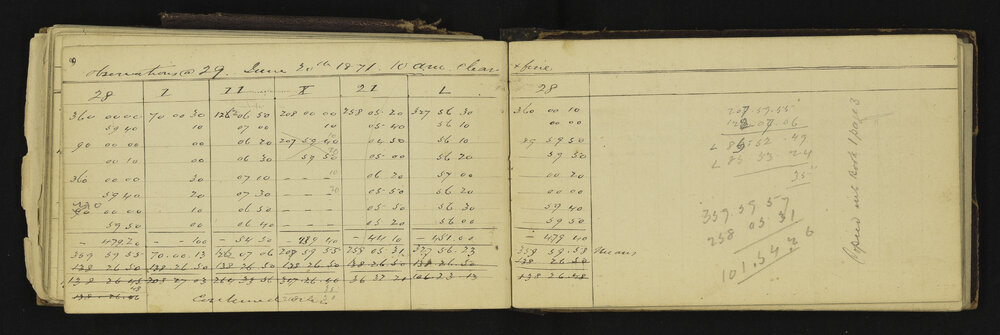 Observations @ 29. June 30th 1871. 10 am. Clear & fine
28 I II X 21 L 28
360 00 00 70 00 30 126 06 50 208 00 00 258 05 20 327 56 30 360 00 10
59 40 10 07 00 10 05 40 56 10 00 00
90 00 00 00 06 20 207 59 40 04 50 56 10 59 50
00 10 00 06 30 59 50 05 00 56 20 59 50
360 00 00 30 07 10 - - 10 06 20 57 00 00 20
59 40 20 07 30 - - 30 05 50 56 20 00 00
00 00 10 06 50 - - - 05 50 56 30 59 40
59 50 00 06 40 - - - 05 20 56 00 59 50
- 479 20 - - 100 - 54 50 - 439 40 - 44 10 - 451 00 - 479 40
359 59 55 70 00 13 126 07 06 207 59 55 258 05 31 327 56 23 359 59 58 Means
138 26 50 138 26 50 138 26 50 138 26 50 138 26 50 138 26 50 138 26 50
138 26 45 208 27 03 264 33 56 36 32 21 106 23 13 138 26 48
138 26 46
207 59 55
07 06
52 49
L 85 53 24
35
359 59 57
258 05 31
101.54.26